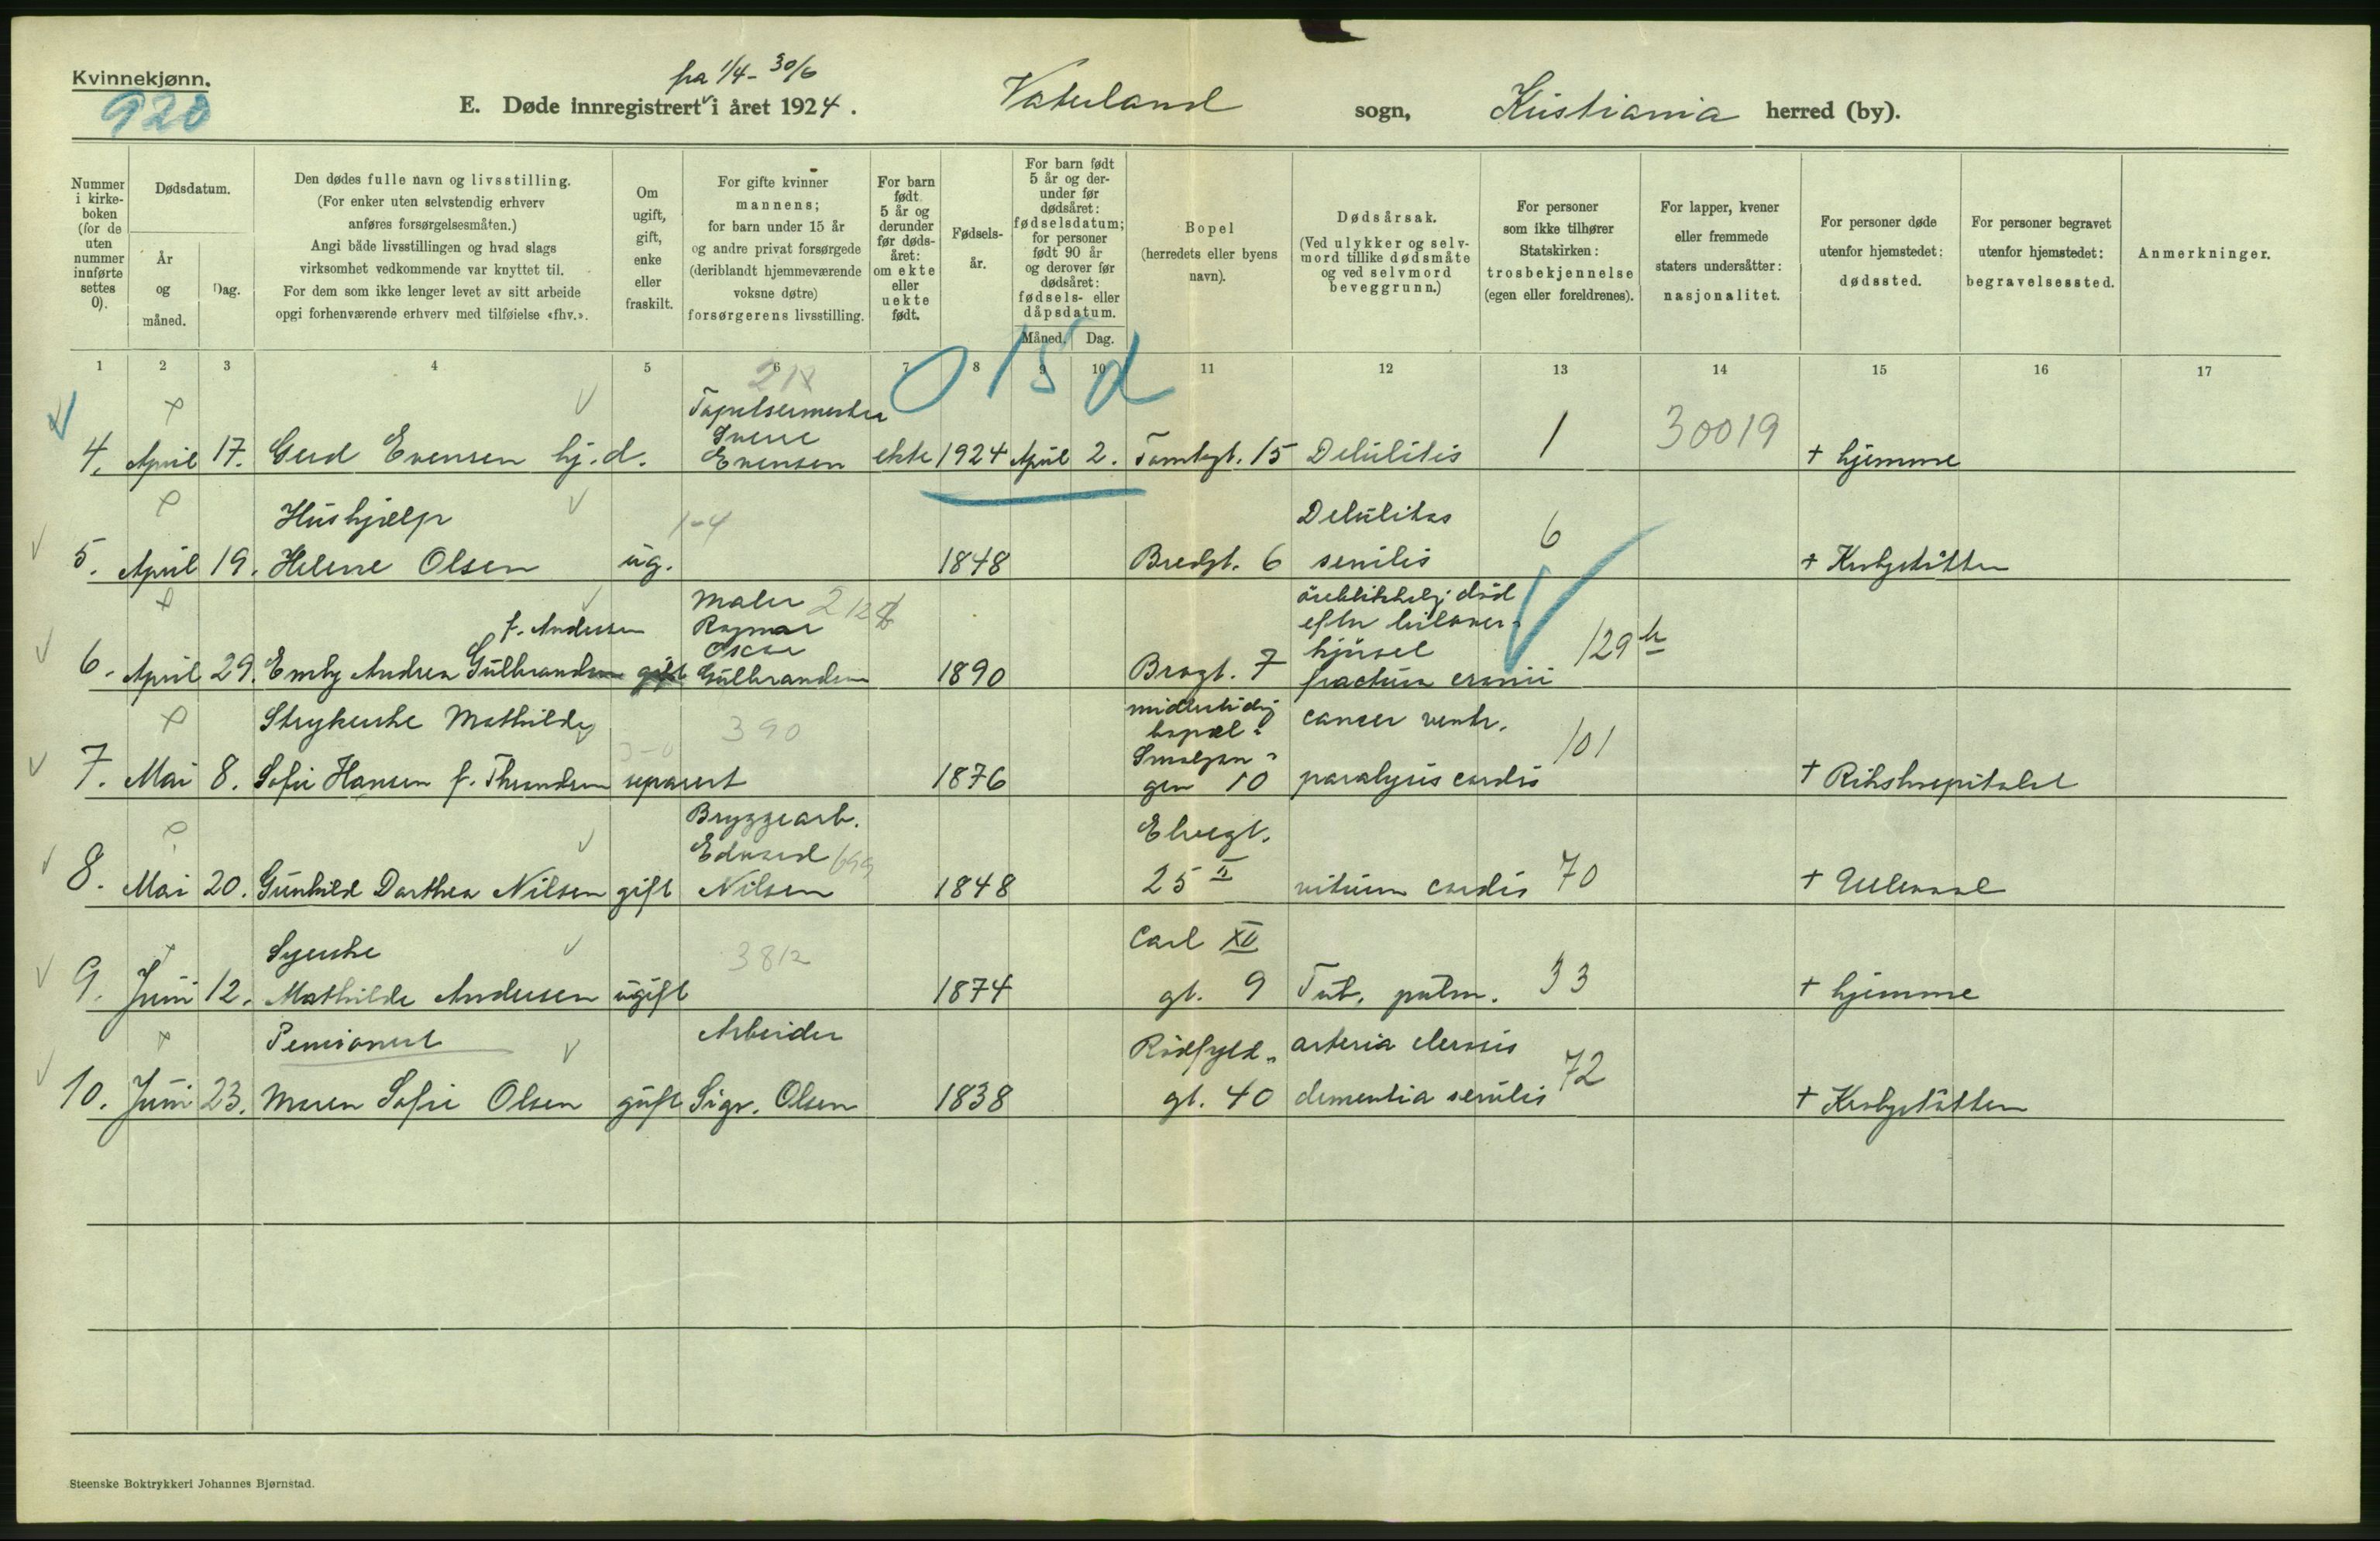 Kvinnekjønn.
920
fra 1/4 - 30/6
E. Døde innregistrert i året 1924.
Vaterland sogn, Kristiania herred (by).
Nummer i kirkeboken (for de uten nummer innførte settes 0).
Dødsdatum.
År og måned.
Dag.
Den dødes fulle navn og livsstilling.
(For enker uten selvstendig erhverv
anføres forsørgelsesmåten.)
Angi både livsstillingen og hvad slags
virksomhet vedkommende var knyttet til.
For dem som ikke lenger levet av sitt arbeide
opgi forhenværende erhverv med tilføielse «fhv.».
Om ugift, gift, enke eller fraskilt.
For gifte kvinner
mannens;
for barn under 15 år
og andre privat forsørgede
(deriblandt hjemmeværende
voksne døtre)
forsørgerens livsstilling.
For barn født 5 år og derunder før dødsåret: om ekte eller uekte født.
Fødselsår.
For barn født
5 år og der-
under før
dødsåret:
fødselsdatum;
for personer
født 90 år
og derover før
dødsåret:
fødsels- eller
dåpsdatum.
Måned. Dag.
Bopel
(herredets eller byens
navn).
Dødsårsak.
(Ved ulykker og selv-
mord tillike dødsmåte
og ved selvmord
beveggrunn.)
For personer
som ikke tilhører
Statskirken:
trosbekjennelse
(egen eller foreldrenes).
For lapper, kvener
eller fremmede
staters undersåtter:
nasjonalitet.
For personer døde
utenfor hjemstedet:
dødssted.
For personer begravet
utenfor hjemstedet:
begravelsessted.
Anmerkninger.
1 2 3 4 5 6 7 8 9 10 11 12 13 14 15 16 17
0 15 d
Tapetsermester
Sverre
4. April 17. Gerd Evensen hj. d. Evensen ekte 1924 April 2. Tomtegt. 15 Debilitis 1 30019 + hjemme
Hushjælp 1-4 Debilitas 6
5. April 19. Helene Olsen ug. 1848 Bredgt. 6 senilis + Krohgstøtten
Maler
f. Andersen Ragnar
Oscar
øieblikkelig død
efter bilover-
kjørsel
6. April 29. Emly Andrea Gulbrandsen gift Gulbrandsen 1890 Brogt. 7 fractura cranii 129
Strykerske Mathilde 390
midlertidig
bopæl:
cancer ventr. 101
Smalgan-
7. Mai 8. Sofie Hansen f. separert 1876 gen 10 paralysis cordis + Rikshospitalet
Bryggearb.
Edvard
Elvegt.
8. Mai 20. Gunhild Dorthea Nilsen gift Nilsen 1848 25 II vitium cordis 70 + Ullevaal
Syerske 3812 Carl XII
9. Juni 12. Mathilde Andersen ugift 1874 gt. 9 Tub. pulm. 33 + hjemme
Pensionert Arbeider Rødfyld- arteria sclerosis
10. Juni 23. Maren Sofie Olsen gift Sigv. Olsen 1838 gt. 40 dementia senilis 72 + Krohgstøtten
Steenske Boktrykkeri Johannes Bjørnstad.